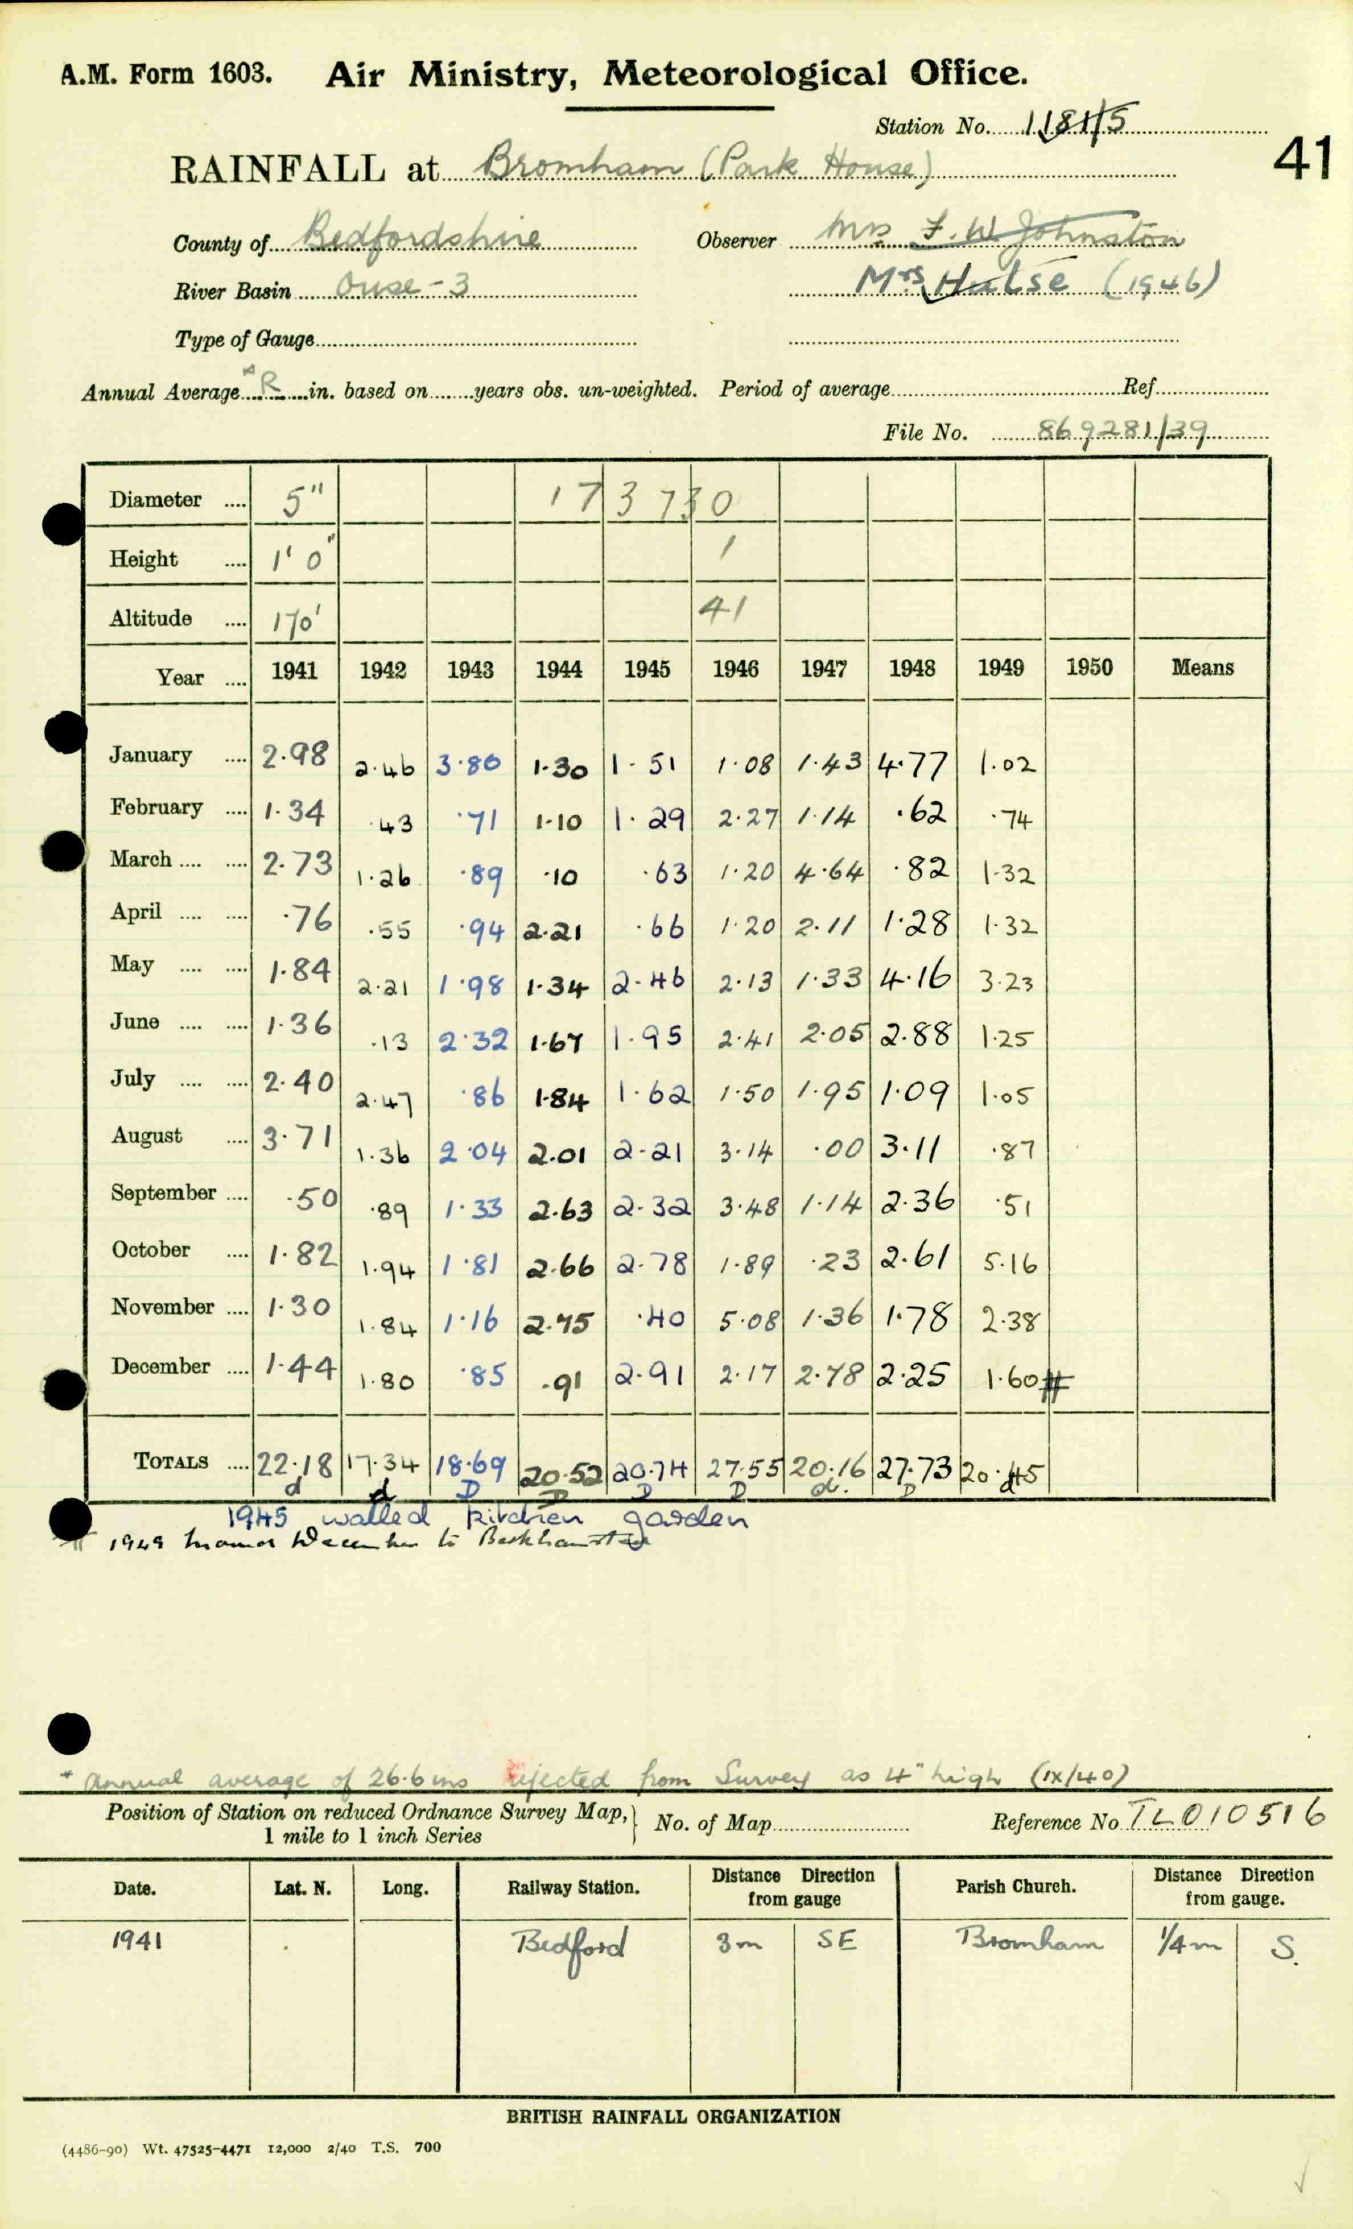 A.M. Form 1603. Air Ministry, Meteorological Office.
Station No. 1181/5
41
RAINFALL at Bromham (Park House)
County of Bedfordshire Observer Mrs F. W. Johnston
River Basin Ouse - 3 Mrs Hulse (1946)
Type of Gauge
Annual Average * R in. based on years obs. un-weighted. Period of average Ref.
File No. 869281/39
Diameter .... 5" 173730
Height .... 1' 0" 1
Altitude .... 170' 41
Year .... 1941 1942 1943 1944 1945 1946 1947 1948 1949 1950 Means
January .... 2.98 2.46 3.80 1.30 1.51 1.08 1.43 4.77 1.02
February .... 1.34 .43 .71 1.10 1.29 2.27 1.14 .62 .74
March .... .... 2.73 1.26 .89 .10 .63 1.20 4.64 .82 1.32
April .... .... .76 .55 .94 2.21 .66 1.20 2.11 1.28 1.32
May .... .... 1.84 2.21 1.98 1.34 2.46 2.13 1.33 4.16 3.23
June .... .... 1.36 .13 2.32 1.67 1.95 2.41 2.05 2.88 1.25
July .... .... 2.40 2.47 .86 1.84 1.62 1.50 1.95 1.09 1.05
August .... 3.71 1.36 2.04 2.01 2.21 3.14 .00 3.11 .87
September .... .50 .89 1.33 2.63 2.32 3.48 1.14 2.36 .51
October .... 1.82 1.94 1.81 2.66 2.78 1.89 .23 2.61 5.16
November .... 1.30 1.84 1.16 2.75 .40 5.08 1.36 1.78 2.38
December .... 1.44 1.80 .85 .91 2.91 2.17 2.78 2.25 1.60 #
TOTALS .... 22.18 17.34 18.69 20.52 20.74 27.55 20.16 27.73 20.45
d d D D D D d. D d
1945 walled kitchen garden
# 1949 moved December to Berkhamsted
* Annual average of 26.6 ins rejected from Survey as 4" high (IX/40)
Position of Station on reduced Ordnance Survey Map, } No. of Map Reference No TL010516
1 mile to 1 inch Series
Date. Lat. N. Long. Railway Station. Distance Direction from gauge Parish Church. Distance Direction from gauge.
1941 Bedford 3m SE Bromham 1/4m S.
BRITISH RAINFALL ORGANIZATION
(4486-90) Wt. 47525-4471 12,000 2/40 T.S. 700